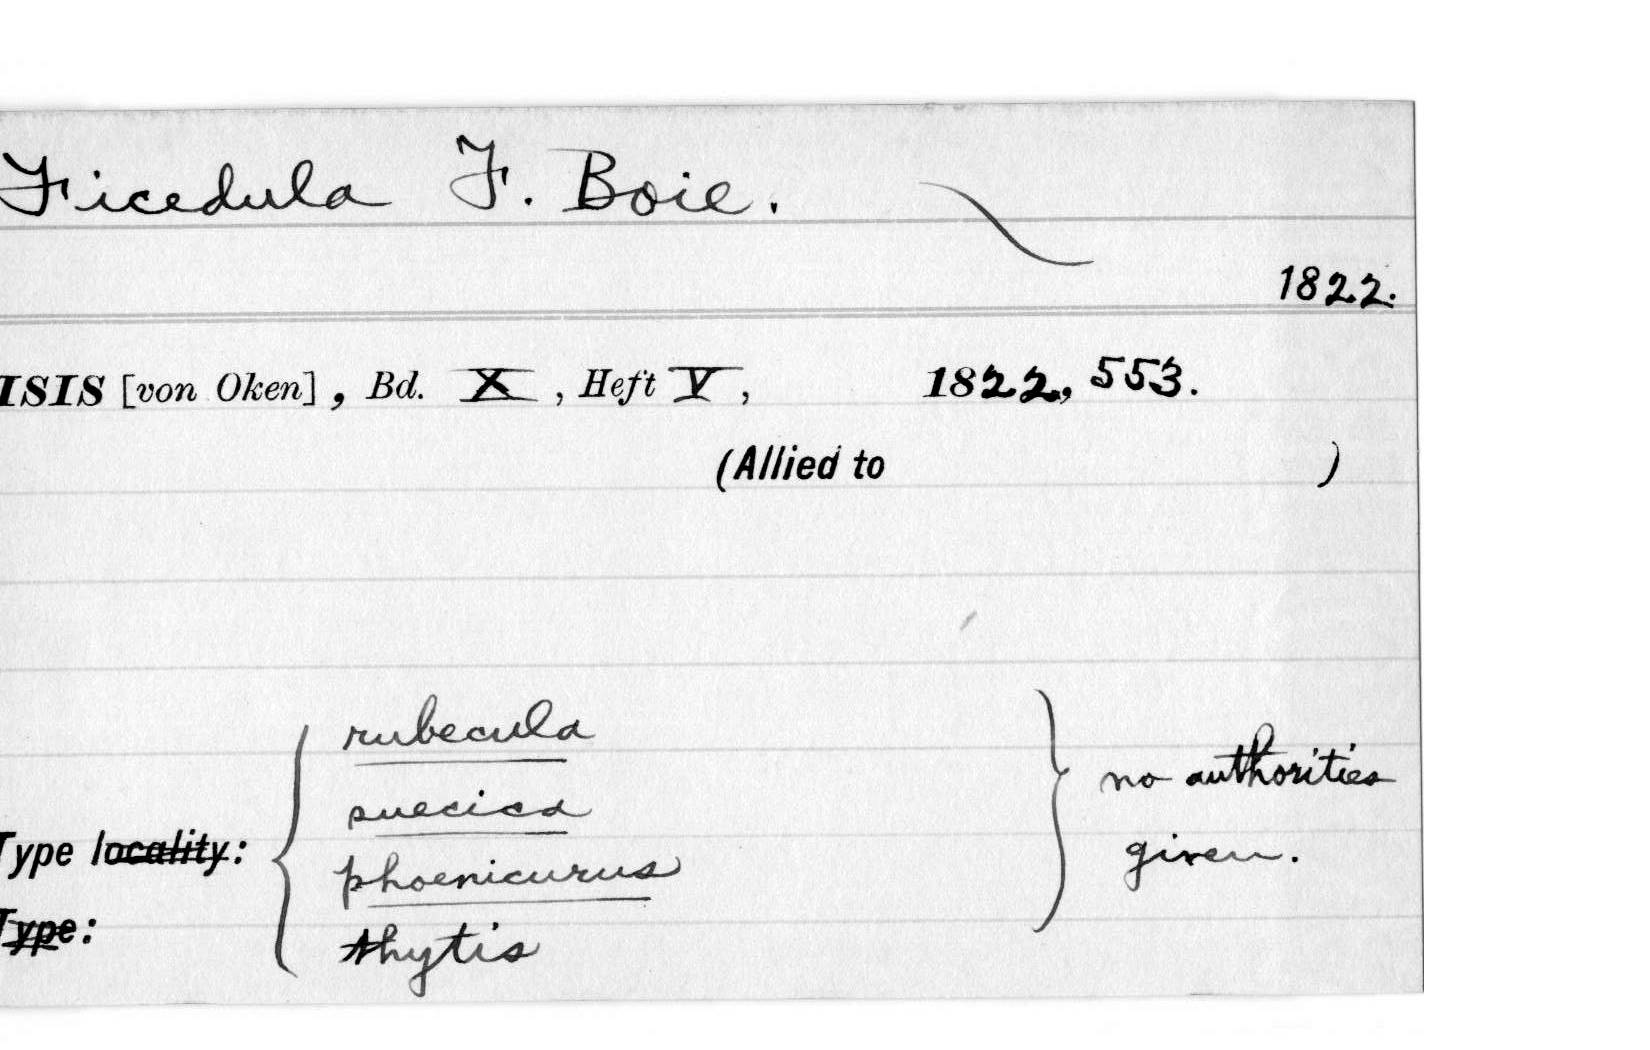 Ficedula F. Boie.
1822.
ISIS [von Oken], Bd. X, Heft V, 1822, 553.
(Allied to )
rubecula
suecica
no authorities
Type locality:
phoenicurus
given.
Type:
thytis